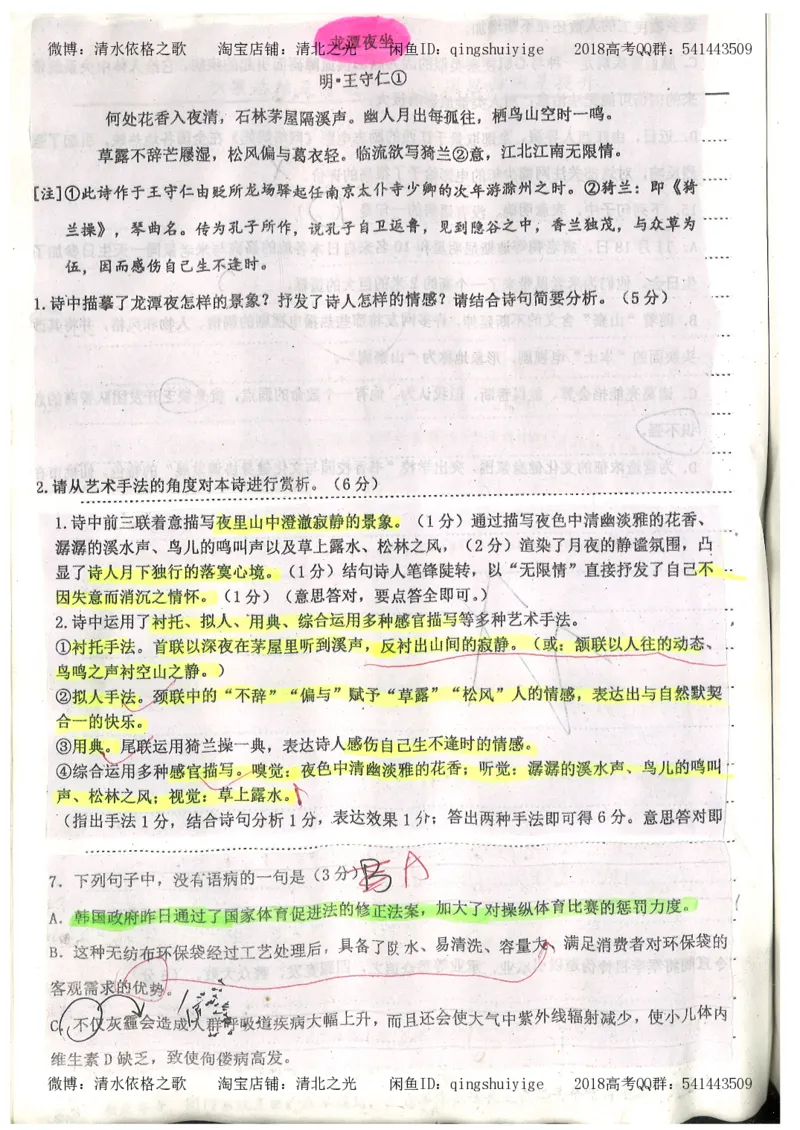 龙潭夜坐
微博：清水依格之歌 淘宝店铺：清北之光 闲鱼ID：qingshuiyige 2018高考QQ群：541443509
明·王守仁①
何处花香入夜清，石林茅屋隔溪声。幽人月出每孤往，栖鸟山空时一鸣。
草露不辞芒屦湿，松风偏与葛衣轻。临流欲写猗兰②意，江北江南无限情。
[注]①此诗作于王守仁由贬所龙场驿起任南京太仆寺少卿的次年游滁州之时。②猗兰：即《猗
兰操》，琴曲名。传为孔子所作，说孔子自卫返鲁，见到隐谷之中，香兰独茂，与众草为
伍，因而感伤自己生不逢时。
1.诗中描摹了龙潭夜怎样的景象？抒发了诗人怎样的情感？请结合诗句简要分析。（5分）
2.请从艺术手法的角度对本诗进行赏析。（6分）
1.诗中前三联着意描写夜里山中澄澈寂静的景象。（1分）通过描写夜色中清幽淡雅的花香、
潺潺的溪水声、鸟儿的鸣叫声以及草上露水、松林之风，（2分）渲染了月夜的静谧氛围，凸
显了诗人月下独行的落寞心境。（1分）结句诗人笔锋陡转，以“无限情”直接抒发了自己不
因失意而消沉之情怀。（1分）（意思答对，要点答全即可。）
2.诗中运用了衬托、拟人、用典、综合运用多种感官描写等多种艺术手法。
①衬托手法。首联以深夜在茅屋里听到溪声，反衬出山间的寂静。（或：颔联以人往的动态、
鸟鸣之声衬空山之静。）
②拟人手法。颈联中的“不辞”“偏与”赋予“草露”“松风”人的情感，表达出与自然默契
合一的快乐。
③用典。尾联运用猗兰操一典，表达诗人感伤自己生不逢时的情感。
④综合运用多种感官描写。嗅觉：夜色中清幽淡雅的花香；听觉：潺潺的溪水声、鸟儿的鸣叫
声、松林之风；视觉：草上露水。
（指出手法1分，结合诗句分析1分，表达效果1分；答出两种手法即可得6分。意思答对即
7．下列句子中，没有语病的一句是（3分） B A
A．韩国政府昨日通过了国家体育促进法的修正法案，加大了对操纵体育比赛的惩罚力度。
B．这种无纺布环保袋经过工艺处理后，具备了防水、易清洗、容量大、满足消费者对环保袋的
客观需求的优势。
C．不仅灰霾会造成人群呼吸道疾病大幅上升，而且还会使大气中紫外线辐射减少，使小儿体内
维生素D缺乏，致使佝偻病高发。
微博：清水依格之歌 淘宝店铺：清北之光 闲鱼ID：qingshuiyige 2018高考QQ群：541443509